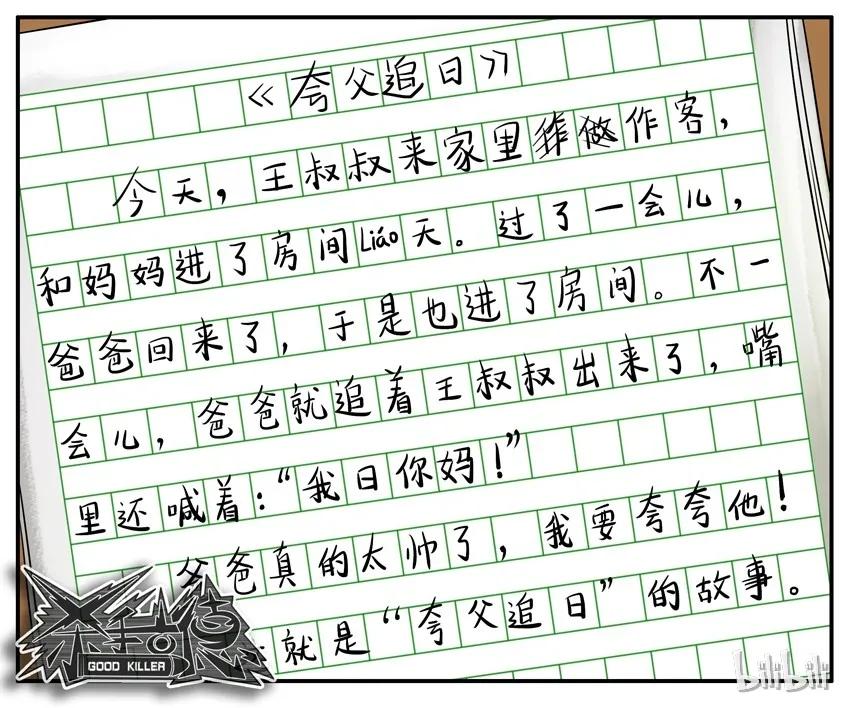 《夸父追日》
今天，王叔叔来家里做作客，
和妈妈进了房间Liáo天。过了一会儿，
爸爸回来了，于是也进了房间。不一
会儿，爸爸就追着王叔叔出来了，嘴
里还喊着：“我日你妈！”
爸爸真的太帅了，我要夸夸他！
就是“夸父追日”的故事。
GOOD KILLER
bilibili